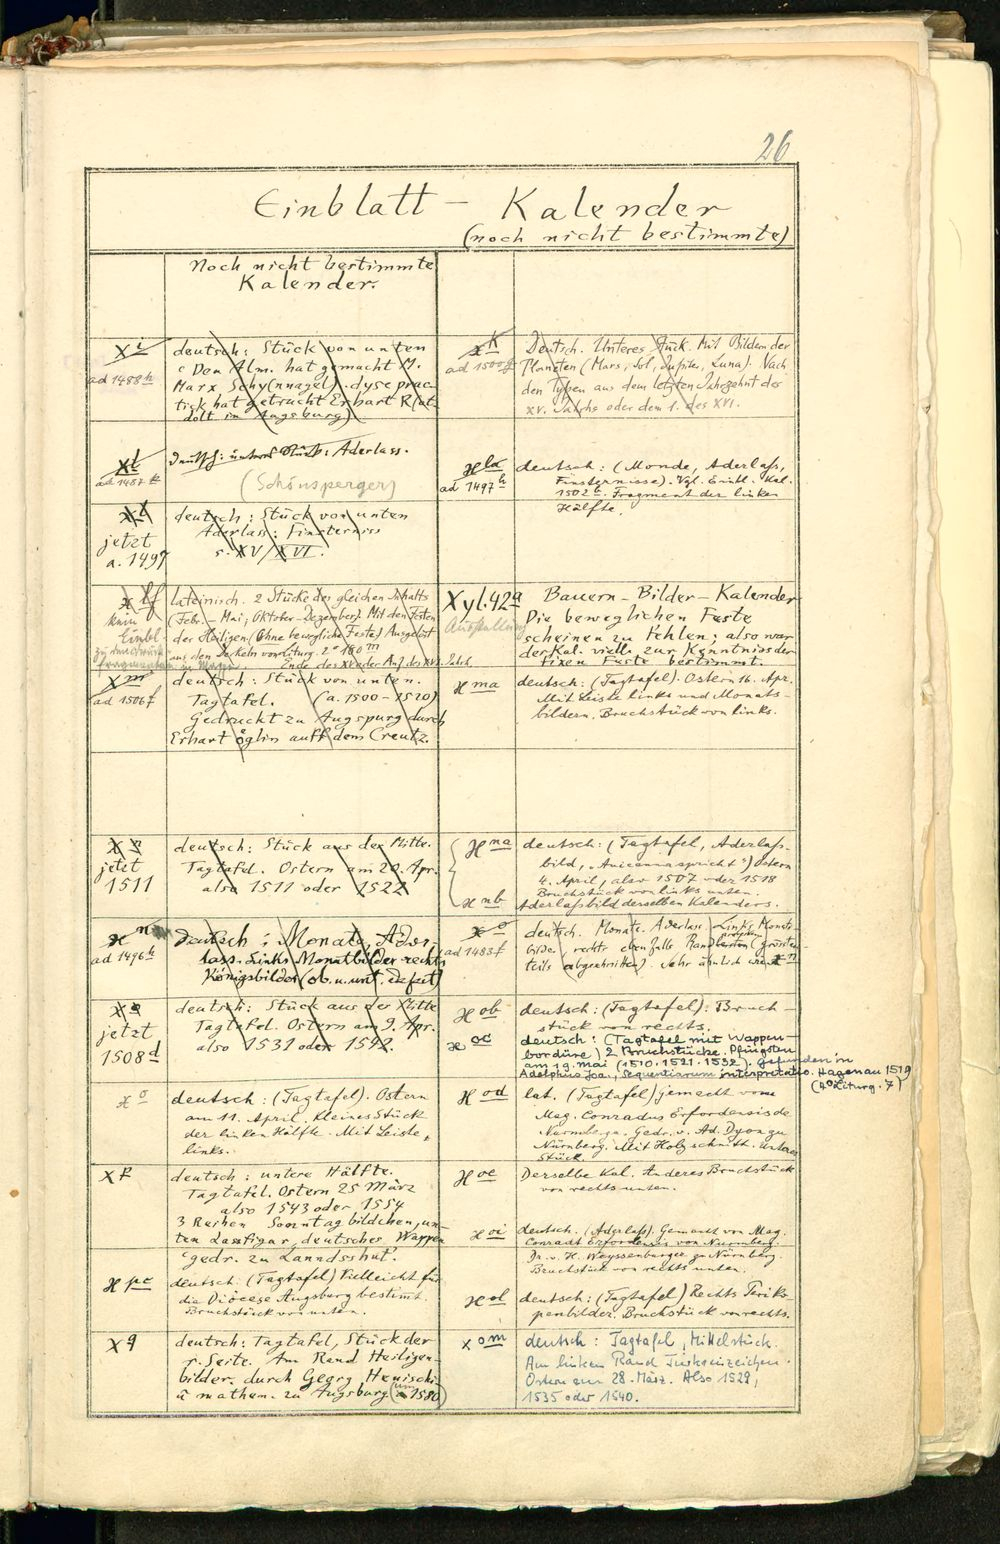 26
Einblatt - Kalender
(noch nicht bestimmte)
Noch nicht bestimmte
Kalender.
X i
ad 1488 h
deutsch: Stück von unten
Den Alm. hat gemacht M.
Marx Schy(nnagel). dyse prac
tick hat getruckt Erhart R(at
dolt in Augsburg)
X l
ad 1487 k
deutsch: unteres Stück: Aderlass.
(Schönsperger)
jetzt
a. 1497
deutsch: Stück von unten
Aderlass: Finsterniss
s. XV/XVI.
X lf
kein
Einbl.
lateinisch. 2 Stücke des gleichen Inhalts
(Febr. - Mai; Oktober-Dezember). Mit den Festen
der Heiligen (Ohne bewegliche Feste) Ausgelöst
aus den Deckeln von Liturg. 2° 180 m
Ende des XV. oder Anf. des XVI. Jahrh.
X m
ad 1506 f
deutsch: Stück von unten.
Tagtafel. (a. 1500-1520)
Gedruckt zu Augspurg durch
Erhart öglin auff dem Creutz.
X n
jetzt
1511
deutsch: Stück aus der Mitte.
Tagtafel. Ostern am 20. Apr.
also 1511 oder 1522
X n
ad 1496 h
Deutsch: Monate, Ader-
lass. Links Monatbilder rechts
Königsbilder (ob. u. unt. defect)
X o
jetzt
1508 d
deutsch: Stück aus der Mitte
Tagtafel. Ostern am 9. Apr.
also 1531 oder 1542.
X o
deutsch: (Tagtafel). Ostern
am 11. April. Kleines Stück
der linken Hälfte. Mit Leiste,
links.
X p
deutsch: untere Hälfte.
Tagtafel. Ostern 25 März
also 1543 oder 1554
3 Reihen Sonntagbildchen, un-
ten Lassfigur, deutsches Wappen
"gedr. zu Lanndsshut".
X pc
deutsch: (Tagtafel) Vielleicht für
die Diöcese Augsburg bestimmt.
Bruchstück von unten.
X q
deutsch: Tagtafel, Stück der
r. Seite. Am Rand Heiligen-
bilder. durch Georg Henischi
u mathem. zu Augsburg (um 1580)
X k
ad 1500 f
Deutsch. Unteres Stück. Mit Bildern der
Planeten (Mars, Sol, Jupiter, Luna). Nach
den Typen aus dem letzten Jahrzehnt des
XV. Jahrhs oder dem 1. des XVI.
X la
ad 1497 h
deutsch: (Monde, Aderlass,
Finsternisse). Vgl. Einbl. Kal.
1502 Fragment der linken
Hälfte.
Xyl. 42 a
Aufstellung
Bauern-Bilder-Kalender
Die beweglichen Feste
scheinen zu fehlen; also war
der Kal. vielh. zur Kenntniss der
fixen Feste bestimmt.
X ma
deutsch: (Tagtafel). Ostern 16. Apr.
Mit Leiste links und Monats-
bildern. Bruchstück von links.
X na
deutsch: (Tagtafel, Aderlass-
bild, "Avicenna spricht") Ostern
4. April, also 1507 oder 1518
Bruchstück von links unten.
X nb
Aderlassbild derselben Kalenders.
X o
ad 1483 f
deutsch. Monate. Aderlass. Links Monats-
bilder rechts ebenfalls Randborten (grössten-
teils abgeschnitten). Sehr ähnlich wie X n
X ob
deutsch: (Tagtafel). Bruch-
stück von rechts.
X oc
deutsch: (Tagtafel mit Wappen-
bordüre) 2 Bruchstücke. Pfingsten
am 19. Mai (1510. 1521. 1532). gefunden in
Adelphus Joa., Sequentiarum interpretatio. Hagenau 1519
(4° Liturg. 7)
X od
lat. (Tagtafel) gemacht vom
Mag. Conradus Erfordensis de
Nurmberga. Gedr. v. Ad. Dyon zu
Nürnberg. Mit Holzschnitt. Unteres
Stück.
X oe
Derselbe Kal. Anderes Bruchstück
von rechts unten.
X oi
deutsch. (Aderlass). Gemacht von Mag.
Conradt Erfordensis von Nurmberg.
Dr. v. H. Weyssenburger zu Nürnberg.
Bruchstück von rechts unten.
X ol
deutsch: (Tagtafel) Rechts
Bruchstück von rechts.
X om
deutsch: Tagtafel, Mittelstück.
Am linken Rand Tierkreiszeichen.
Ostern am 28. März. Also 1529,
1535 oder 1540.